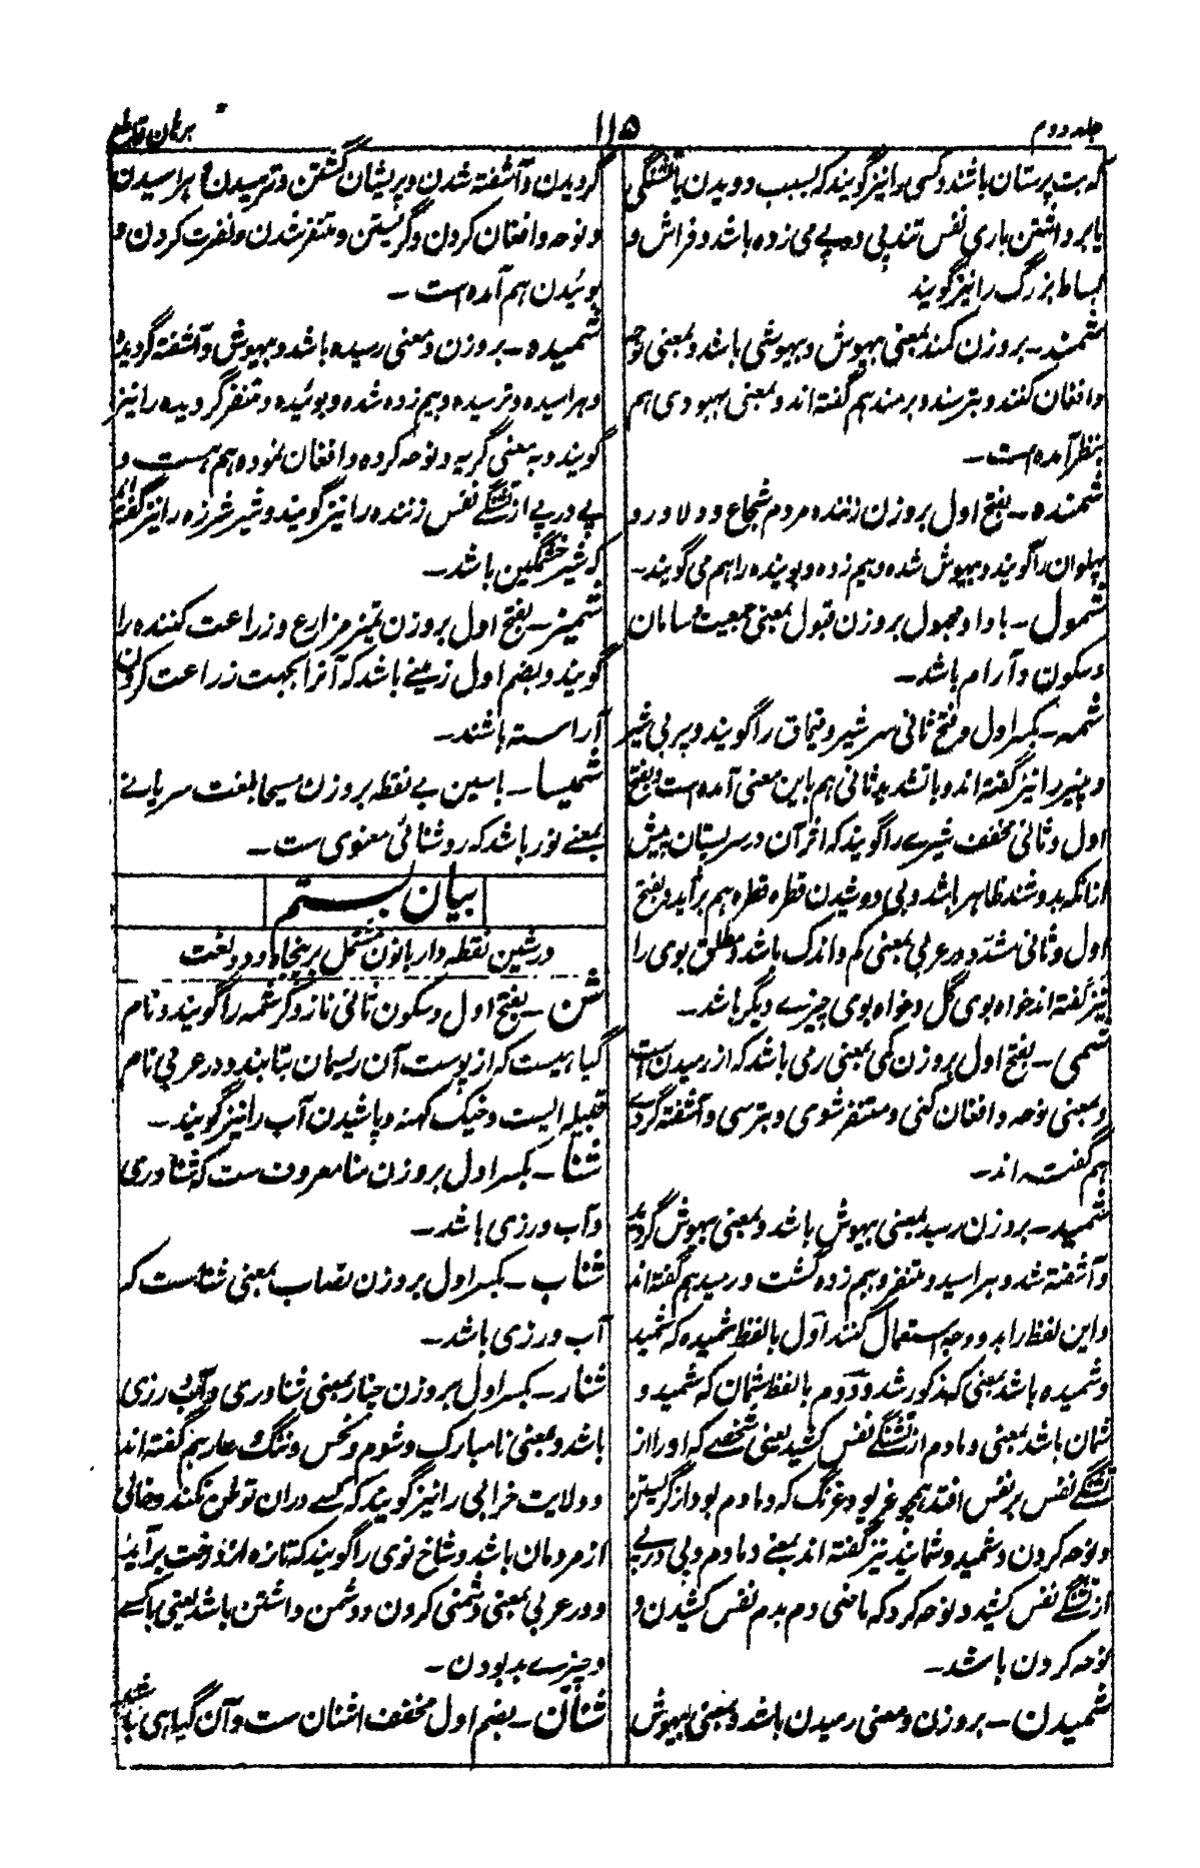 جلد دوم
۱۱۵
برهان قاطع
که بت پرستان باشند و کسی را نیز گویند که بسبب دویدن یا تشنگی
یا برداشتن باری نفس تند پی در پی می زده باشد و فراش و
بساط بزرگ را نیز گویند
شمند ـ بروزن کمند بمعنی بیهوش و بیهوشی باشد و بمعنی نوحه
و افغان کنند و بترسند و برمند هم گفته اند و بمعنی بهبودی هم
بنظر آمده است ـ
شمنده ـ بفتح اول بروزن زننده مردم شجاع و دلاور و
پهلوان را گویند و بیهوش شده و بیم زده و بوینده را هم می گویند ـ
شمول ـ با واو مجهول بروزن قبول بمعنی جمعیت و سامان
و سکون و آرام باشد ـ
شمه ـ بکسر اول و فتح ثانی سر شیر و قیماق را گویند و چربی شیر
و پنیر را نیز گفته اند و با تشدید ثانی هم باین معنی آمده است و بفتح
اول و ثانی مخفف شیرے را گویند که از آن در سر پستان پیش
ازانکه بدوشند ظاهر باشد و بی دوشیدن قطره قطره هم برآید و بفتح
اول و ثانی مشدد در عربی بمعنی کم و اندک باشد و مطلق بوی را
نیز گفته اند خواه بوی گل و خواه بوی چیزے دیگر باشد ـ
شمی ـ بفتح اول بروزن کمی بمعنی رمی باشد که از رمیدن است
و بمعنی نوحه و افغان کنی و متنفر شوی و بترسی و آشفته گردی
هم گفته اند ـ
شمید ـ بروزن رسید بمعنی بیهوش باشد و بمعنی بیهوش گردید
و آشفته شد و هراسید و متنفر و بیم زده گشت و رمید هم گفته اند
و این لفظ را بدو وجه استعمال کنند اول با لفظ شمیده که شمید
و شمیده باشد بمعنی که مذکور شد و دوم با لفظ شمان که شمید و
شمان باشد بمعنی دمادم از تشنگے نفس کشید یعنی شخصے که او را از
تشنگے نفس بر نفس افتد همچو غریو و غرنگ که دمادم بود از گریستن
و نوحه کردن و شمید و شمانید نیز گفته اند بمعنے دمادم و پی در پے
از تشنگے نفس کشید و نوحه کرد که ماضی دم بدم نفس کشیدن و
نوحه کردن باشد ـ
شمیدن ـ بروزن و معنی رمیدن باشد و بمعنی بیهوش
گردیدن و آشفته شدن و پریشان گشتن و ترسیدن و هراسیدن
و نوحه و افغان کردن و گریستن و متنفر شدن و نفرت کردن و
بوئیدن هم آمده است ـ
شمیده ـ بروزن و معنی رمیده باشد و بیهوش و آشفته گردیده
و هراسیده و ترسیده و بیم زده شده و بوئیده و متنفر گردیده را نیز
گویند و به معنی گریه و نوحه کرده و افغان نموده هم هست و
پی در پی از تشنگے نفس زننده را نیز گویند و شیر شرزه را نیز گفته اند
که شیر خشمگین باشد ـ
شمیز ـ بفتح اول بروزن تمیز مزارع و زراعت کننده را
گویند و بضم اول زمینے باشد که آنرا بجهت زراعت کردن
آراسته باشند ـ
شمیسا ـ باسین بے نقطه بروزن مسیحا بلغت سریانے
بمعنے نور باشد که روشنائی معنوی ست ـ
بیان بستم
در شین نقطه دار بانون مشتمل بر پنجاه و دو لغت
شن ـ بفتح اول و سکون ثانی ناز و کرشمه را گویند و نام
گیاهیست که از پوست آن ریسمان بتابند و در عربی نام
قبیله ایست و خیک کهنه و پاشیدن آب را نیز گویند ـ
شنا ـ بکسر اول بروزن منا معروف ست که شناوری
و آب ورزی باشد ـ
شناب ـ بکسر اول بروزن نصاب بمعنی شناست که
آب ورزی باشد ـ
شنار ـ بکسر اول بروزن چنار بمعنی شناوری و آب ورزی
باشد و بمعنی نامبارک و شوم و نحس و ننگ و عار هم گفته اند
و ولایت خرابی را نیز گویند که کسے دران توطن نکند و خالی
از مردمان باشد و شاخ نوی را گویند که تازه از درخت برآید
و در عربی بمعنی دشمنی کردن و دشمن داشتن باشد یعنی باکسے
و چیزے بد بودن ـ
شنان ـ بضم اول مخفف اشنان ست و آن گیاهی باشد